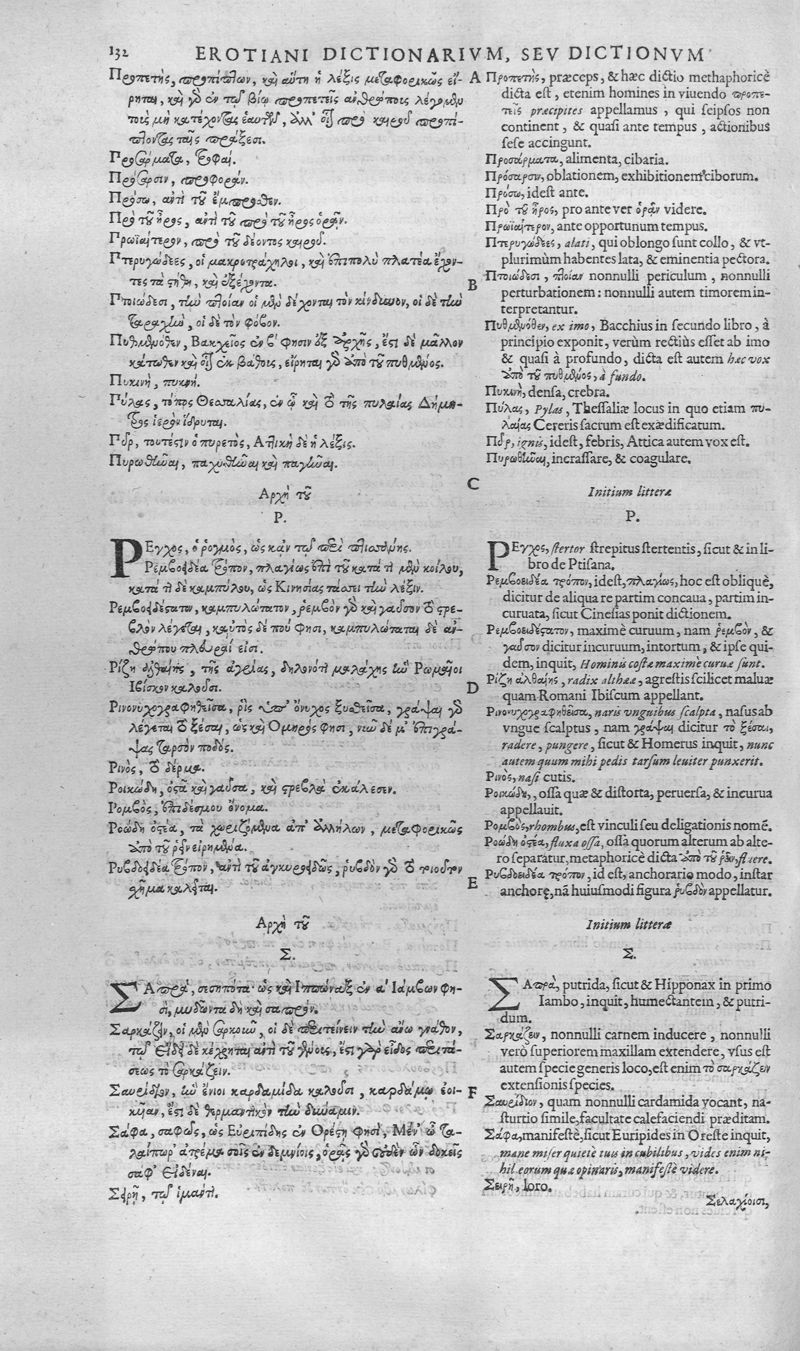 132 EROTIANI DICTIONARIVM, SEV DICTIONVM
Προπετὴς, προπίπτων, καὶ αὕτη ἡ λέξις μεταφορικῶς εἴ-
ρηται, καὶ γὸ ἐν τῷ βίῳ προπετεῖς ἀνθρώπους λέγομεν
τοὺς μὴ κατέχοντας ἑαυτοὺς, ἀλλ' οἷον πρὸ καιροῦ προπί-
πτοντας ταῖς πράξεσι.
Προσάρματα, τροφαί.
Πρόσαρσιν, προσφοράν.
Πρόσω, ἀντὶ τοῦ ἔμπροσθεν.
Πρὸ τοῦ ἦρος, ἀντὶ τοῦ πρὸ τοῦ ἦρος ὁρᾷν.
Πρωϊαίτερον, πρὸ τοῦ δέοντος καιροῦ.
Πτερυγώδεες, οἱ μακροτράχηλοι, καὶ ἐπιπολὺ πλατέα ἔχον-
τες τὰ στήθη, καὶ ἐξέχοντα.
Πτοιώδεσι, τὴν πτοίαν οἱ μὲν δέχονται τὸν κίνδυνον, οἱ δὲ τὴν
ταραχὴν, οἱ δὲ τὸν φόβον.
Πυθμένοθεν, Βακχεῖος ἐν β' φησὶν ἐξ ἀρχῆς, ἔστι δὲ μᾶλλον
κάτωθεν καὶ οἷον ἐκ βάθους, εἴρηται γὸ ἀπὸ τοῦ πυθμένος.
Πυκινὴ, πυκνή.
Πύλας, τόπος Θεσσαλίας, ἐν ᾧ καὶ τὸ τῆς πυλαίας Δήμη-
τρος ἱερὸν ἵδρυται.
Πῦρ, τουτέστιν ὁ πυρετὸς, Ἀττικὴ δὲ ἡ λέξις.
Πυρωθῆναι, παχυθῆναι καὶ παγῆναι.
Ἀρχὴ τοῦ
Ρ.
ΡΕγχος, ὁ ρογμὸς, ὡς κἀν τῷ περὶ πτισάνης.
Ρεμβοειδέα τρόπον, πλαγίως ἐπὶ τοῦ κατὰ τὶ μὲν κοίλου,
κατὰ τὶ δὲ καμπύλου, ὡς Κινησίας τάσσει τὴν λέξιν.
Ρεμβοειδέστατον, καμπυλώτατον, ῥεμβὸν γὸ καὶ γαῦσον τὸ στρε-
βλὸν λέγεται, καὐτὸς δέ πού φησι, καμπυλώταται δὲ ἀν-
θρώπου πλευραί εἰσι.
Ρίζῃ ἀλθαίης, τῆς ἀγρίας, δηλονότι μαλάχης ἣν Ρωμαῖοι
Ἰβίσκον καλοῦσι.
Ρινονυχογραφηθεῖσα, ῥὶς ὑπ' ὄνυχος ξυσθεῖσα, γράψαι γὸ
λέγεται τὸ ξέσαι, ὡς καὶ Ὅμηρός φησι, νῦν δὲ μ' ἐπιγρά-
ψας ταρσὸν ποδός.
Ρινὸς, τὸ δέρμα.
Ροικώδη, ὀστᾶ καὶ γαῦσα, καὶ στρεβλὰ ἐκάλεσεν.
Ρόμβος, ἐπιδέσμου ὄνομα.
Ροώδη ὀστέα, τὰ χωριζόμενα ἀπ' ἀλλήλων, μεταφορικῶς
ἀπὸ τοῦ ῥεῖν εἰρημένα.
Ρυβδοειδέα τρόπον, ἀντὶ τοῦ ἀγκυροειδῶς, ῥυβδὸν γὸ τὸ τοιοῦτον
σχῆμα καλεῖται.
Ἀρχὴ τοῦ
Σ.
ΣΑπρὰ, σεσηπότα· ὡς καὶ Ἱππώναξ ἐν α' Ἰάμβων φη-
σὶ, μυδῶντα δὴ καὶ σαπρόν.
Σαρκάζειν, οἱ μὲν σαρκοῦν, οἱ δὲ ἐπιτείνειν τὴν ἄνω γνάθον,
τῷ εἴδει δὲ κέχρηται ἀντὶ τοῦ γένους, ἔστι γὰρ εἶδος ἐπιτά-
σεως τὸ σαρκάζειν.
Σαυρίδιον, ἣν ἔνιοι καρδαμίδα καλοῦσι, καρδάμῳ ἐοι-
κυῖαν, ἔστι δὲ θερμαντικὸν τὴν δύναμιν.
Σάφα, σαφῶς, ὡς Εὐριπίδης ἐν Ὀρέστῃ φησὶ, Μέν' ὦ τα-
λαίπωρ' ἀτρέμα σοῖς ἐν δεμνίοις, ὁρᾷς γὸ οὐδὲν ὧν δοκεῖς
σαφ' εἰδέναι.
Σειρῇ, τῷ ἱμάντι.
A
B
C
D
E
F
Προπετὴς, præceps, & hæc dictio methaphoricè
dicta est, etenim homines in viuendo προπε-
τεῖς præcipites appellamus, qui seipsos non
continent, & quasi ante tempus, actionibus
sese accingunt.
Προσάρματα, alimenta, cibaria.
Πρόσαρσιν, oblationem, exhibitionem ciborum.
Πρόσω, idest ante.
Πρὸ τοῦ ἦρος, pro ante ver ὁρᾷν videre.
Πρωϊαίτερον, ante opportunum tempus.
Πτερυγώδεες, alati, qui oblongo sunt collo, & vt-
plurimùm habentes lata, & eminentia pectora.
Πτοιώδεσι, πτοίαν nonnulli periculum, nonnulli
perturbationem: nonnulli autem timorem in-
terpretantur.
Πυθμένοθεν, ex imo, Bacchius in secundo libro, à
principio exponit, verùm rectiùs esset ab imo
& quasi à profundo, dicta est autem hæc vox
ἀπὸ τοῦ πυθμένος, à fundo.
Πυκινὴ, densa, crebra.
Πύλας, Pylas, Thessaliæ locus in quo etiam πυ-
λαίας Cereris sacrum est exædificatum.
Πῦρ, ignis, idest, febris, Attica autem vox est.
Πυρωθῆναι, incrassare, & coagulare.
Initium litteræ
Ρ.
ΡΕγχος, stertor strepitus stertentis, sicut & in li-
bro de Ptisana.
Ρεμβοειδέα τρόπον, idest, πλαγίως, hoc est obliquè,
dicitur de aliqua re partim concaua, partim in-
curuata, sicut Cinesias ponit dictionem.
Ρεμβοειδέστατον, maximè curuum, nam ῥεμβὸν, &
γαῦσον dicitur incuruum, intortum, & ipse qui-
dem, inquit, Hominis costæ maximè curuæ sunt.
Ρίζῃ ἀλθαίης, radix altheæ, agrestis scilicet maluæ
quam Romani Ibiscum appellant.
Ρινονυχογραφηθεῖσα, naris vnguibus scalpta, nasus ab
vngue scalptus, nam γράψαι dicitur τὸ ξέσαι,
radere, pungere, sicut & Homerus inquit, nunc
autem quum mihi pedis tarsum leuiter punxerit.
Ρινὸς, nasi cutis.
Ροικώδη, ossa quæ & distorta, peruersa, & incurua
appellauit.
Ρόμβος, rhombus, est vinculi seu deligationis nomē.
Ροώδη ὀστέα, fluxa ossa, ossa quorum alterum ab alte-
ro separatur, metaphoricè dicta ἀπὸ τοῦ ῥεῖν, fluere.
Ρυβδοειδέα τρόπον, id est, anchorario modo, instar
anchoræ, nā huiusmodi figura ῥυβδὸν appellatur.
Initium litteræ
Σ.
ΣΑπρὰ, putrida, sicut & Hipponax in primo
Iambo, inquit, humectantem, & putri-
dum.
Σαρκάζειν, nonnulli carnem inducere, nonnulli
verò superiorem maxillam extendere, vsus est
autem specie generis loco, est enim τὸ σαρκάζειν
extensionis species.
Σαυρίδιον, quam nonnulli cardamida vocant, na-
sturtio simile, facultate calefaciendi præditam.
Σάφα, manifestè, sicut Euripides in Oreste inquit,
mane miser quietè tuis in cubilibus, vides enim ni-
hil eorum quæ opinaris, manifestè videre.
Σειρῇ, loro.
Σελαχίοισι,